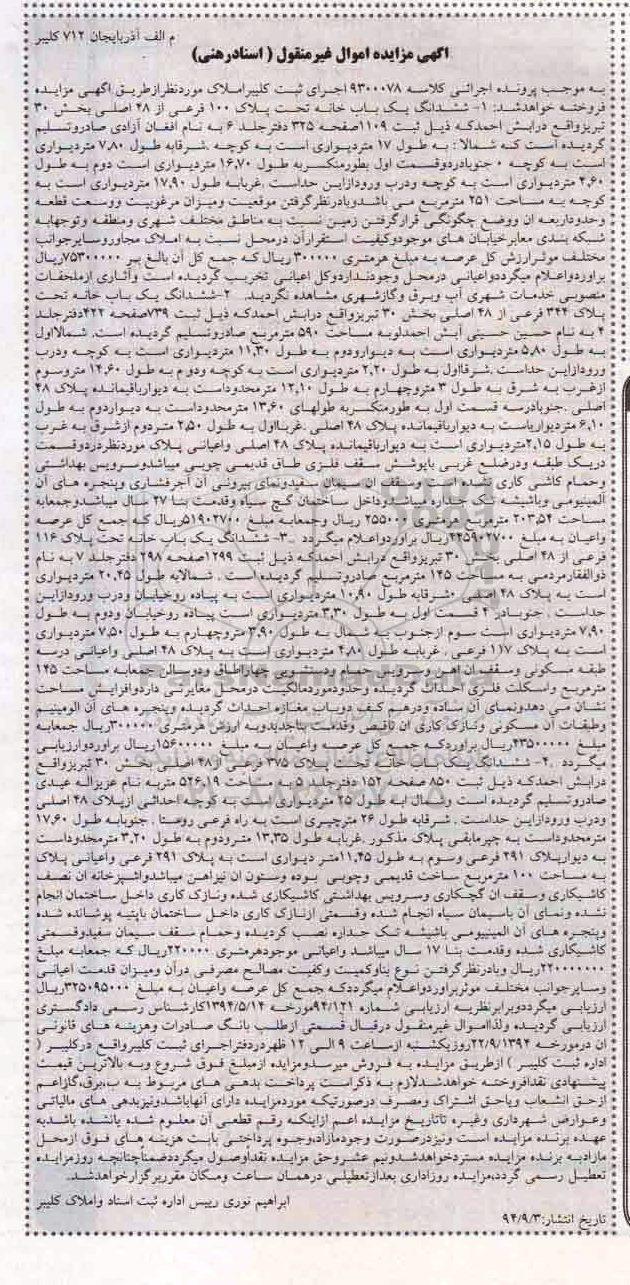 م الف آذربایجان ۷۱۲ کلیبر
آگهی مزایده اموال غیرمنقول ( اسنادرهنی)
به موجب پرونده اجرائی کلاسه ۹۳۰۰۰۷۸ اجرای ثبت کلیبراملاک موردنظرازطریق آگهی مزایده
فروخته خواهدشد: ۱- ششدانگ یک باب خانه تحت پلاک ۱۰۰ فرعی از ۴۸ اصلی بخش ۳۰
تبریزواقع درابش احمدکه ذیل ثبت ۱۱۰۹صفحه ۳۲۵ دفترجلد ۶ به نام افغان آزادی صادروتسلیم
گردیده است که شمالا : به طول ۱۷ متردیواری است به کوچه .شرقابه طول ۷,۸۰ متردیواری
است به کوچه ۰ جنوبادردوقسمت اول بطورمنکسربه طول ۱۶,۷۰ متردیواری است دوم به طول
۴,۶۰ متردیواری است به کوچه ودرب ورودازاین حداست .غربابه طول ۱۷,۹۰ متردیواری است به
کوچه به مساحت ۲۵۱ مترمربع می باشدوبادرنظرگرفتن موقعیت ومیزان مرغوبیت ووسعت قطعه
وحدوداربعه ان ووضع چگونگی قرارگرفتن زمین نسبت به مناطق مختلف شهری ومنطقه وتوجهابه
شبکه بندی معابرخیابان های موجودوکیفیت استقرارآن درمحل نسبت به املاک مجاوروسایرجوانب
مختلف موثرارزش کل عرصه به مبلغ هرمتری ۳۰۰۰۰۰ ریال که جمع کل آن بالغ بر ۷۵۳۰۰۰۰۰ریال
براوردواعلام میگرددواعیانی درمحل وجودنداردوکل اعیانی تخریب گردیده است وآثاری ازملحقات
منصوبی خدمات شهری آب وبرق وگازشهری مشاهده نگردید. ۲-ششدانگ یک باب خانه تحت
پلاک ۳۴۴ فرعی از ۴۸ اصلی بخش ۳۰ تبریزواقع درابش احمدکه ذیل ثبت ۷۳۹صفحه ۴۲۲دفترجلد
۴ به نام حسین حسینی آبش احمدلوبه مساحت ۵۹۰ مترمربع صادروتسلیم گردیده است. شمالااول
به طول ۵,۸۰ متردیواری است به دیوارودوم به طول ۱۱,۳۰ متردیواری است به کوچه ودرب
ورودازاین حداست .شرقااول به طول ۲,۲۰ متردیواری است به کوچه ودو م به طول ۱۴,۶۰ متروسوم
ازغرب به شرق به طول ۳ متروچهارم به طول ۱۲,۱۰ مترمحدوداست به دیوارباقیمانده پلاک ۴۸
اصلی .جنوبادرسه قسمت اول به طورمنکسربه طولهای ۱۳,۶۰ مترمحدوداست به دیواردوم به طول
۶,۱۰ متردیواریاست به دیوارباقیمانده پلاک ۴۸ اصلی .غربااول به طول ۲,۵۰ متردوم ازشرق به غرب
به طول ۲,۱۵متردیواری است به دیوارباقیمانده پلاک ۴۸ اصلی واعیانی پلاک موردنظردردوقسمت
دریک طبقه ودرضلع غربی باپوشش سقف فلزی طاق قدیمی چوبی میباشدوسرویس بهداشتی
وحمام کاشی کاری نشده است وسقف ان سیمان سفیدونمای بیرونی آن آجرفشاری وپنجره های آن
آلمینیومی وباشیشه تک جداره میباشدوداخل ساختمان گچ سیاه وقدمت بنا ۲۷ سال میباشدوجمعابه
مساحت ۲۰۳,۵۴ مترمربع هرمتری ۲۵۵۰۰۰ ریال وجمعابه مبلغ ۵۱۹۰۲۷۰۰ریال که جمع کل عرصه
واعیان به مبلغ ۲۴۵۹۰۲۷۰۰ریال براوردواعلام میگردد .۳- ششدانگ یک باب خانه تحت پلاک ۱۱۶
فرعی از ۴۸ اصلی بخش ۳۰ تبریزواقع درابش احمدکه ذیل ثبت ۱۲۹۹صفحه ۲۹۸ دفترجلد ۷ به نام
ذوالفقارمردمی به مساحت ۱۴۵ مترمربع صادروتسلیم گردیده است . شمالابه طول ۲۰,۴۵ متردیواری
است به پلاک ۴۸ اصلی .شرقابه طول ۱۰,۹۰ متردیواری است به پیاده روخیابان ودرب ورودازاین
حداست . جنوبادر ۴ قسمت اول به طول ۳,۳۰ متردیواری است پیاده روخیابان ودوم به طول
۷,۹۰ متردیواری است سوم ازجنوب به شمال به طول ۳,۹۰ متروچهارم به طول ۷,۵۰ متردیواری
است به پلاک ۱۱۷ فرعی . غربابه طول ۴,۸۰ متردیواری است به پلاک ۴۸ اصلی واعیانی درسه
طبقه مسکونی وسقف ان اهن وسرویس حمام ودستشویی چهاراطاق ودوسالن جمعابه مساحت ۱۴۵
مترمربع واسکلت فلزی احداث گردیده وحدودموردمالکیت درمحل مغایرتی داردوافزایش مساحت
نشان می دهدونمای آن ساده ودرهم کف دوباب مغازه احداث گردیده وپنجره های آن الومینیم
وطبقات آن مسکونی ونازک کاری ان ناقص وقدمت بناجدیدوبه ارزش هرمتری ۳۰۰۰۰۰ریال جمعابه
مبلغ ۴۳۵۰۰۰۰۰ریال براوردکه جمع کل عرصه واعیان به مبلغ ۱۵۶۰۰۰۰۰ریال براوردوارزیابی
میگردد .۴- ششدانگ یک باب خانه تحت پلاک ۳۷۵ فرعی از۴۸ اصلی بخش ۳۰ تبریزواقع
درابش احمدکه ذیل ثبت ۸۵۰ صفحه ۱۵۲ دفترجلد ۵ به مساحت ۵۲۶,۱۹ متربه نام عزیزاله عبدی
صادروتسلیم گردیده است وشمال ابه طول ۲۵ متردیواری است به کوچه احداثی ازپلاک ۴۸ اصلی
ودرب ورودازاین حداست . شرقابه طول ۲۶ مترچپری است به راه فرعی روستا . جنوبابه طول ۱۷,۶۰
مترمحدوداست به چپرمابقی پلاک مذکور .غربابه طول ۱۳,۳۵ مترودوم به طول ۳,۲۰ مترمحدوداست
به دیوارپلاک ۲۹۱ فرعی وسوم به طول ۱۱,۴۵متر دیواری است به پلاک ۲۹۱ فرعی واعیانی پلاک
به مساحت ۱۰۰ مترمربع ساخت قدیمی وچوبی بوده وستون ان تیراهن میباشدواشپزخانه ان نصف
کاشیکاری وسقف ان گچکاری وسرویس بهداشتی کاشیکاری شده ونازک کاری داخل ساختمان انجام
نشده ونمای آن باسیمان سیاه انجام شده وقسمتی ازنازک کاری داخل ساختمان باپتیه پوشانده شده
وپنجره های آن المینیومی باشیشه تک جداره نصب گردیده وحمام سقف سیمان سفیدوقسمتی
کاشیکاری شده وقدمت بنا ۱۷ سال میباشد واعیانی موجودهرمتری ۲۲۰۰۰۰ریال که جمعابه مبلغ
۲۲۰۰۰۰۰۰ریال وبادرنظرگرفتن نوع بناوکمیت وکفیت مصالح مصرفی درآن ومیزان قدمت اعیانی
وسایرجوانب مختلف موثربراوردواعلام میگرددکه جمع کل عرصه واعیان به مبلغ ۳۲۵۰۹۵۰۰۰ریال
ارزیابی میگرددوبرابرنظریه ارزیابی شماره ۹۴/۱۲۱مورخه ۱۳۹۴/۵/۱۴کارشناس رسمی دادگستری
ارزیابی گردیده ولذااموال غیرمنقول درقبال قسمتی ازطلب بانگ صادرات وهزینه های قانونی
ان درمورخه ۲۲/۹/۱۳۹۴روزیکشنبه ازساعت ۹ الی ۱۲ ظهردردفتراجرای ثبت کلیبرواقع درکلیبر (
اداره ثبت کلیبر ) ازطریق مزایده به فروش میرسدومزایده ازمبلغ فوق شروع وبه بالاترین قیمت
پیشنهادی نقدافروخته خواهدشدلازم به ذکراست پرداخت بدهی های مربوط به آب،برق،گازاعم
ازحق انشعاب ویاحق اشتراک ومصرف درصورتیکه موردمزایده دارای آنهاباشدونیزبدهی های مالیاتی
وعوارض شهرداری وغیره تاتاریخ مزایده اعم ازاینکه رقم قطعی آن معلوم شده یانشده باشدبه
عهده برنده مزایده است ونیزدرصورت وجودمازاد،وجوه پرداختی بابت هزینه های فوق ازمحل
مازادبه برنده مزایده مستردخواهدشدونیم عشروحق مزایده نقداوصول میگرددضمناچنانچه روزمزایده
تعطیل رسمی گردد،مزایده روزاداری بعدازتعطیلی درهمان ساعت ومکان مقرربرگزارخواهدشد.
ابراهیم نوری رییس اداره ثبت اسناد واملاک کلیبر
تاریخ انتشار:۹۴/۹/۳